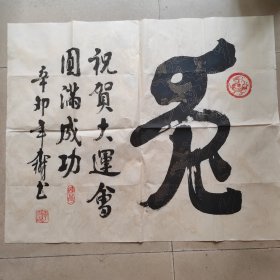 兔
祝賀大運會
圓滿成功
辛卯年
書